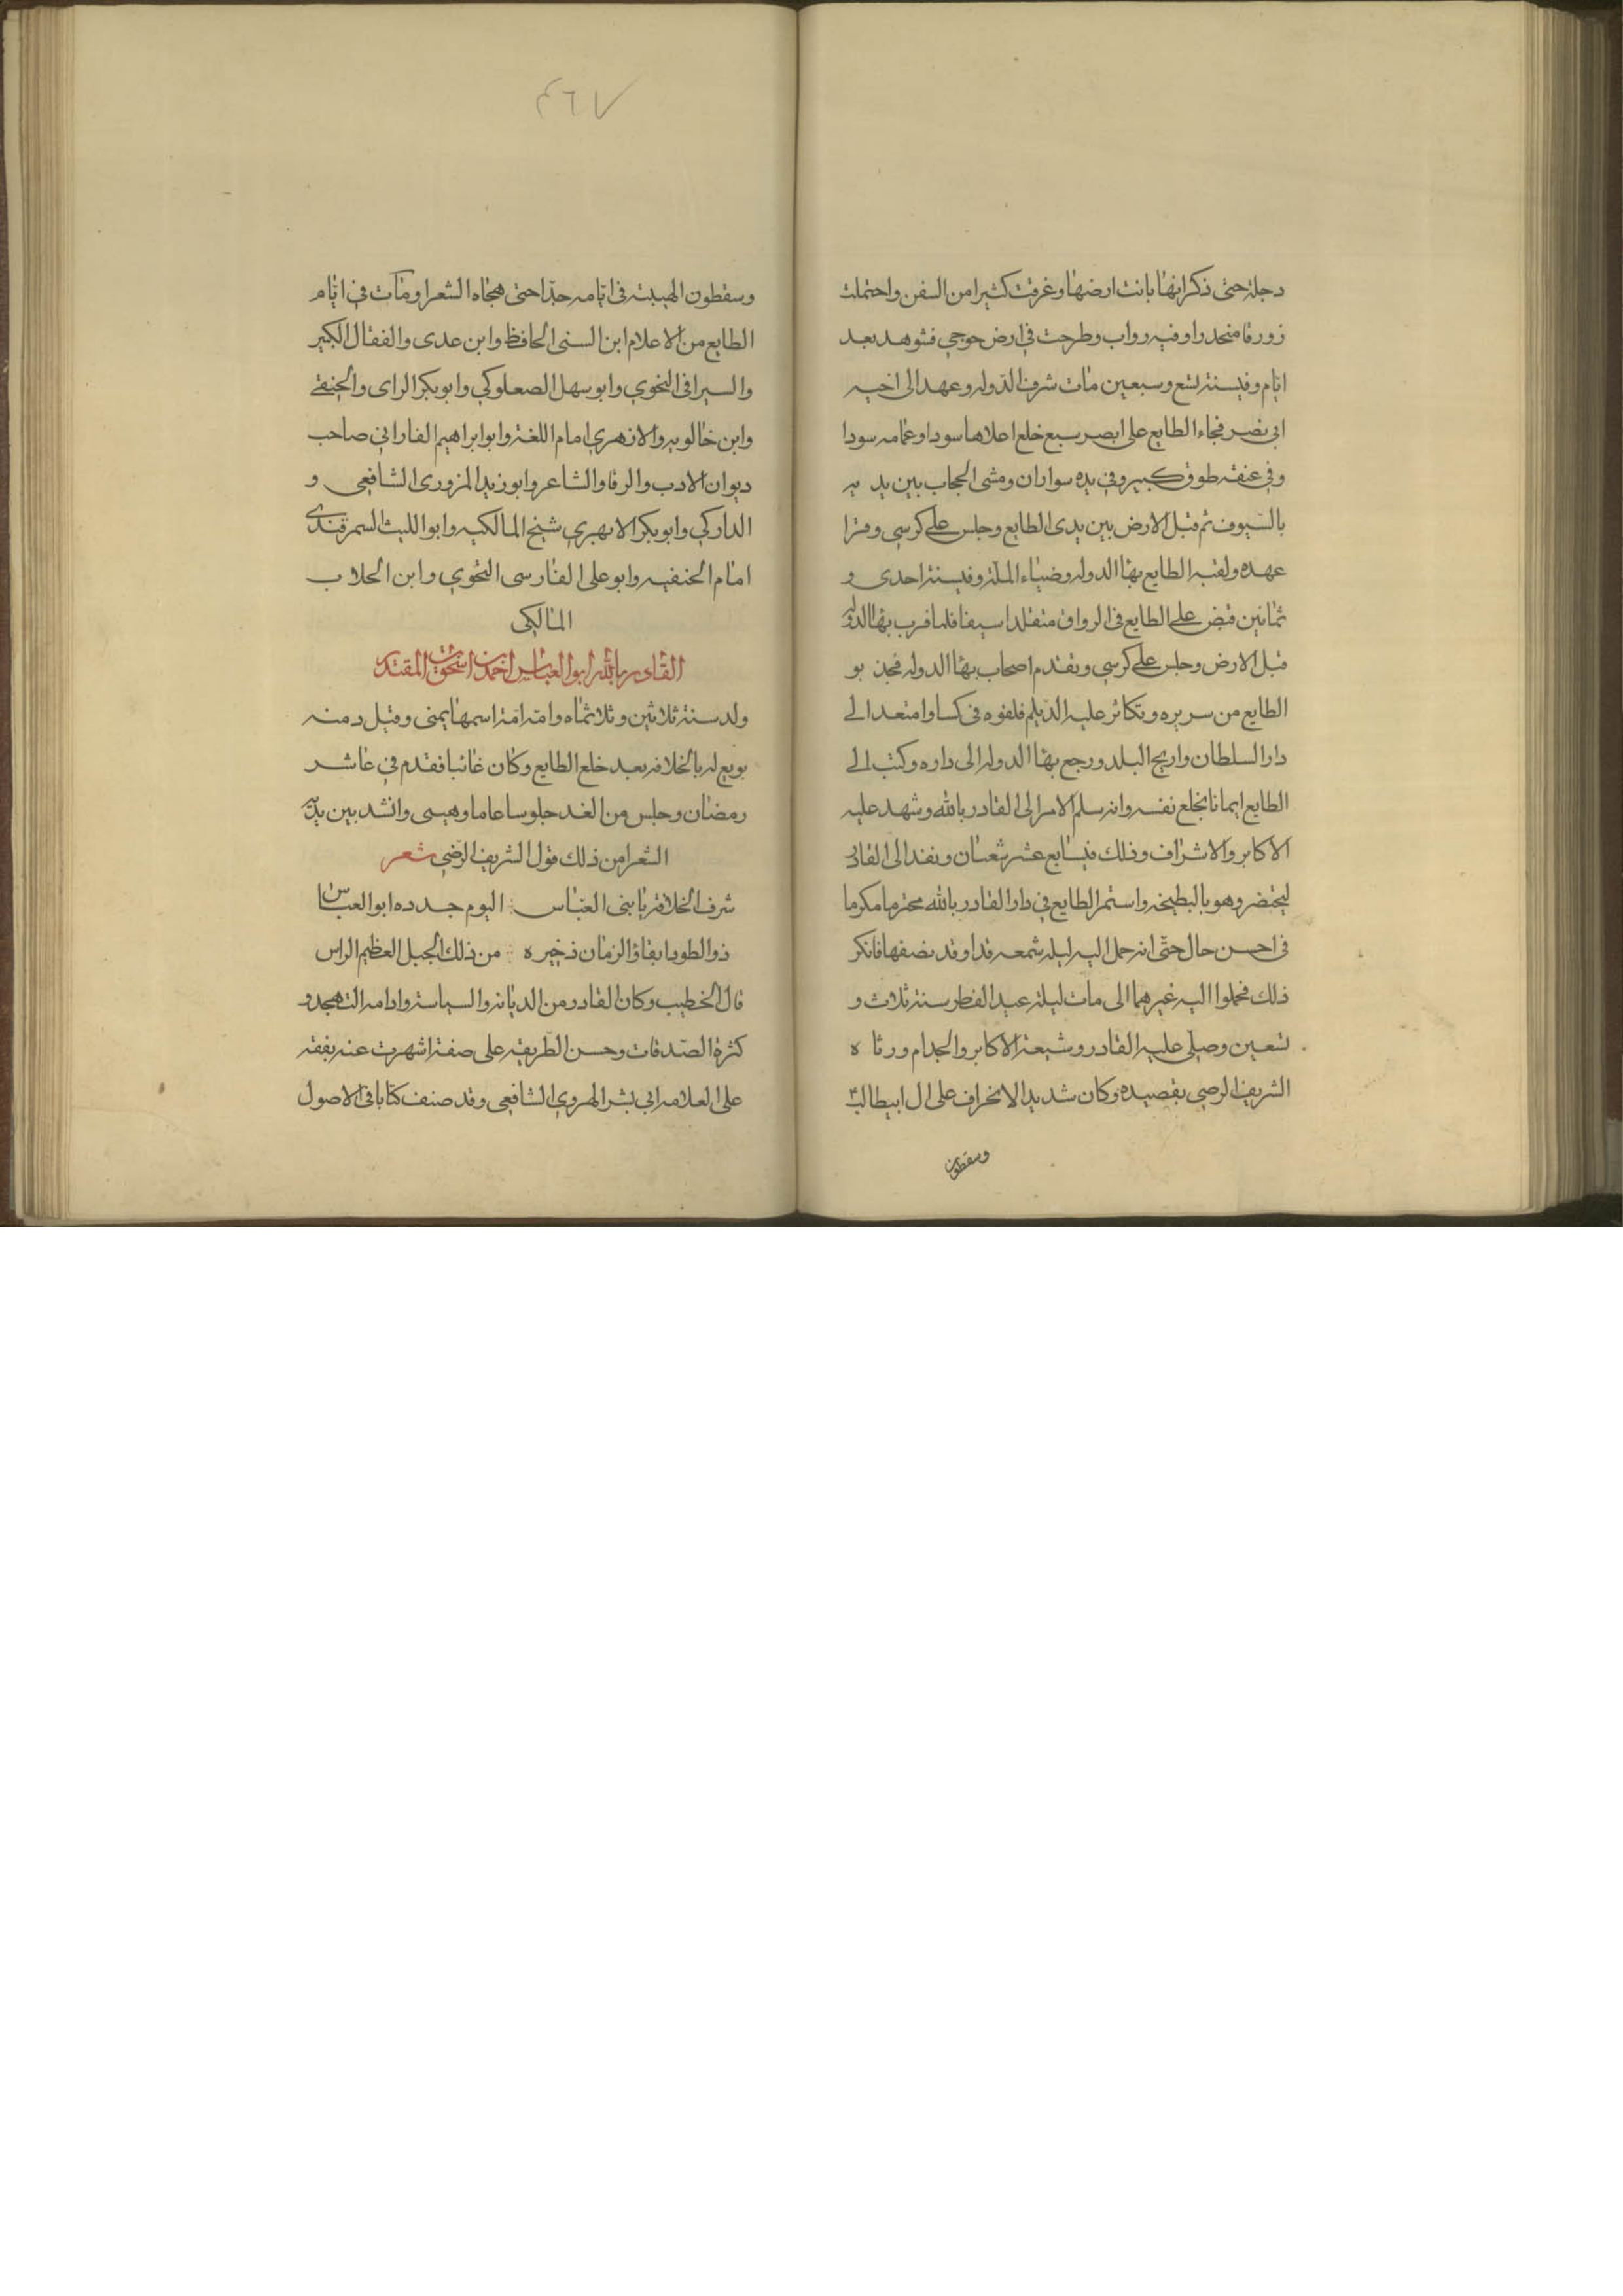 دجلة حتى ذكر انها بانت ارضها وغرقت كثيرا من السفن واحتملت
زورقا منحدرا وفيه رواب وطرحت في ارض جوجى فشوهد بعد
ايام وفي سنة تسع وسبعين مات شرف الدوله وعهد الى اخيه
ابي نصر فجاء الطايع على ابصر سبع خلع اعلاها سودا وعمامه سودا
وفي عنقه طوق كبير وفي يده سواران ومشى الحجاب بين يديه
بالسيوف ثم قبل الارض بين يدى الطايع وجلس على كرسي وقرا
عهده ولقبه الطايع بهاا الدوله وضياء الملة وفي سنة احدى و
ثمانين قبض على الطايع في الرواق متقلدا سيفا فلما قرب بهاا الدوله
قبل الارض وجلس على كرسي وتقدم اصحاب بهاا الدوله فجذبو
الطايع من سريره وتكاثر عليه الديلم فلفوه في كسا وامتعد الى
دار السلطان وارتج البلد ورجع بهاا الدوله الى داره وكتب الى
الطايع ايمانا بخلع نفسه وانه سلم الامر الى القادر بالله وشهد عليه
الاكابر والاشراف وذلك في سابع عشر شعبان ونفذ الى القادر
ليحتضر وهو بالبطيحه واستمر الطايع في دار القادر بالله محترما مكرما
في احسن حال حتى انه حمل اليه ليله شمعه قد اوقد نصفها فانكر
ذلك فحملوا اليه غيرهما الى مات ليلة عيد الفطر سنة ثلاث و
تسعين وصلى عليه القادر وشيعة الاكابر والخدام ورثاه
الشريف الرضي بقصيده وكان شديد الانحراف على ال ابيطالب
وسقطون
٧٦٣
وسقطون الهيبة في ايامه جدا حتى هجاه الشعرا ومات في ايام
الطايع من الاعلام ابن السنى الحافظ وابن عدى والقفال الكبير
والسيرافى النحوي وابو سهل الصعلوكي وابو بكر الراى والحنفي
وابن خالويه والازهري امام اللغة وابو ابراهيم الفارابي صاحب
ديوان الادب والرفا والشاعر وابو زيد المزورى الشافعي و
الداركي وابو بكر الابهري شيخ المالكيه وابو الليث السمرقندى
امام الحنفيه وابو على الفارسى النحوي وابن الجلاب
المالكى
القادر بالله ابو العباس احمد بن اسحق بن المقتدر
ولد سنة ثلاثين وثلاثماه وامه امة اسمها يمنى وقيل دمنه
بويع له بالخلافه بعد خلع الطايع وكان غائبا فقدم في عاشر
رمضان وجلس من الغد جلوسا عاما وهيى وانشد بين يديه
الشعرا من ذلك قول الشريف الرضي شعر
شرف الخلافة يا بنى العباس اليوم جدده ابو العباس
ذو الطود ابقاؤ الزمان ذخيره من ذلك الجبل العظيم الراس
قال الخطيب وكان القادر من الديانه والسياسة وادامه التهجد و
كثرة الصدقات وحسن الطريقه على صفة اشهرت عنه تفقه
على العلامه ابي بشر الهروي الشافعي وقد صنف كتابا في الاصول